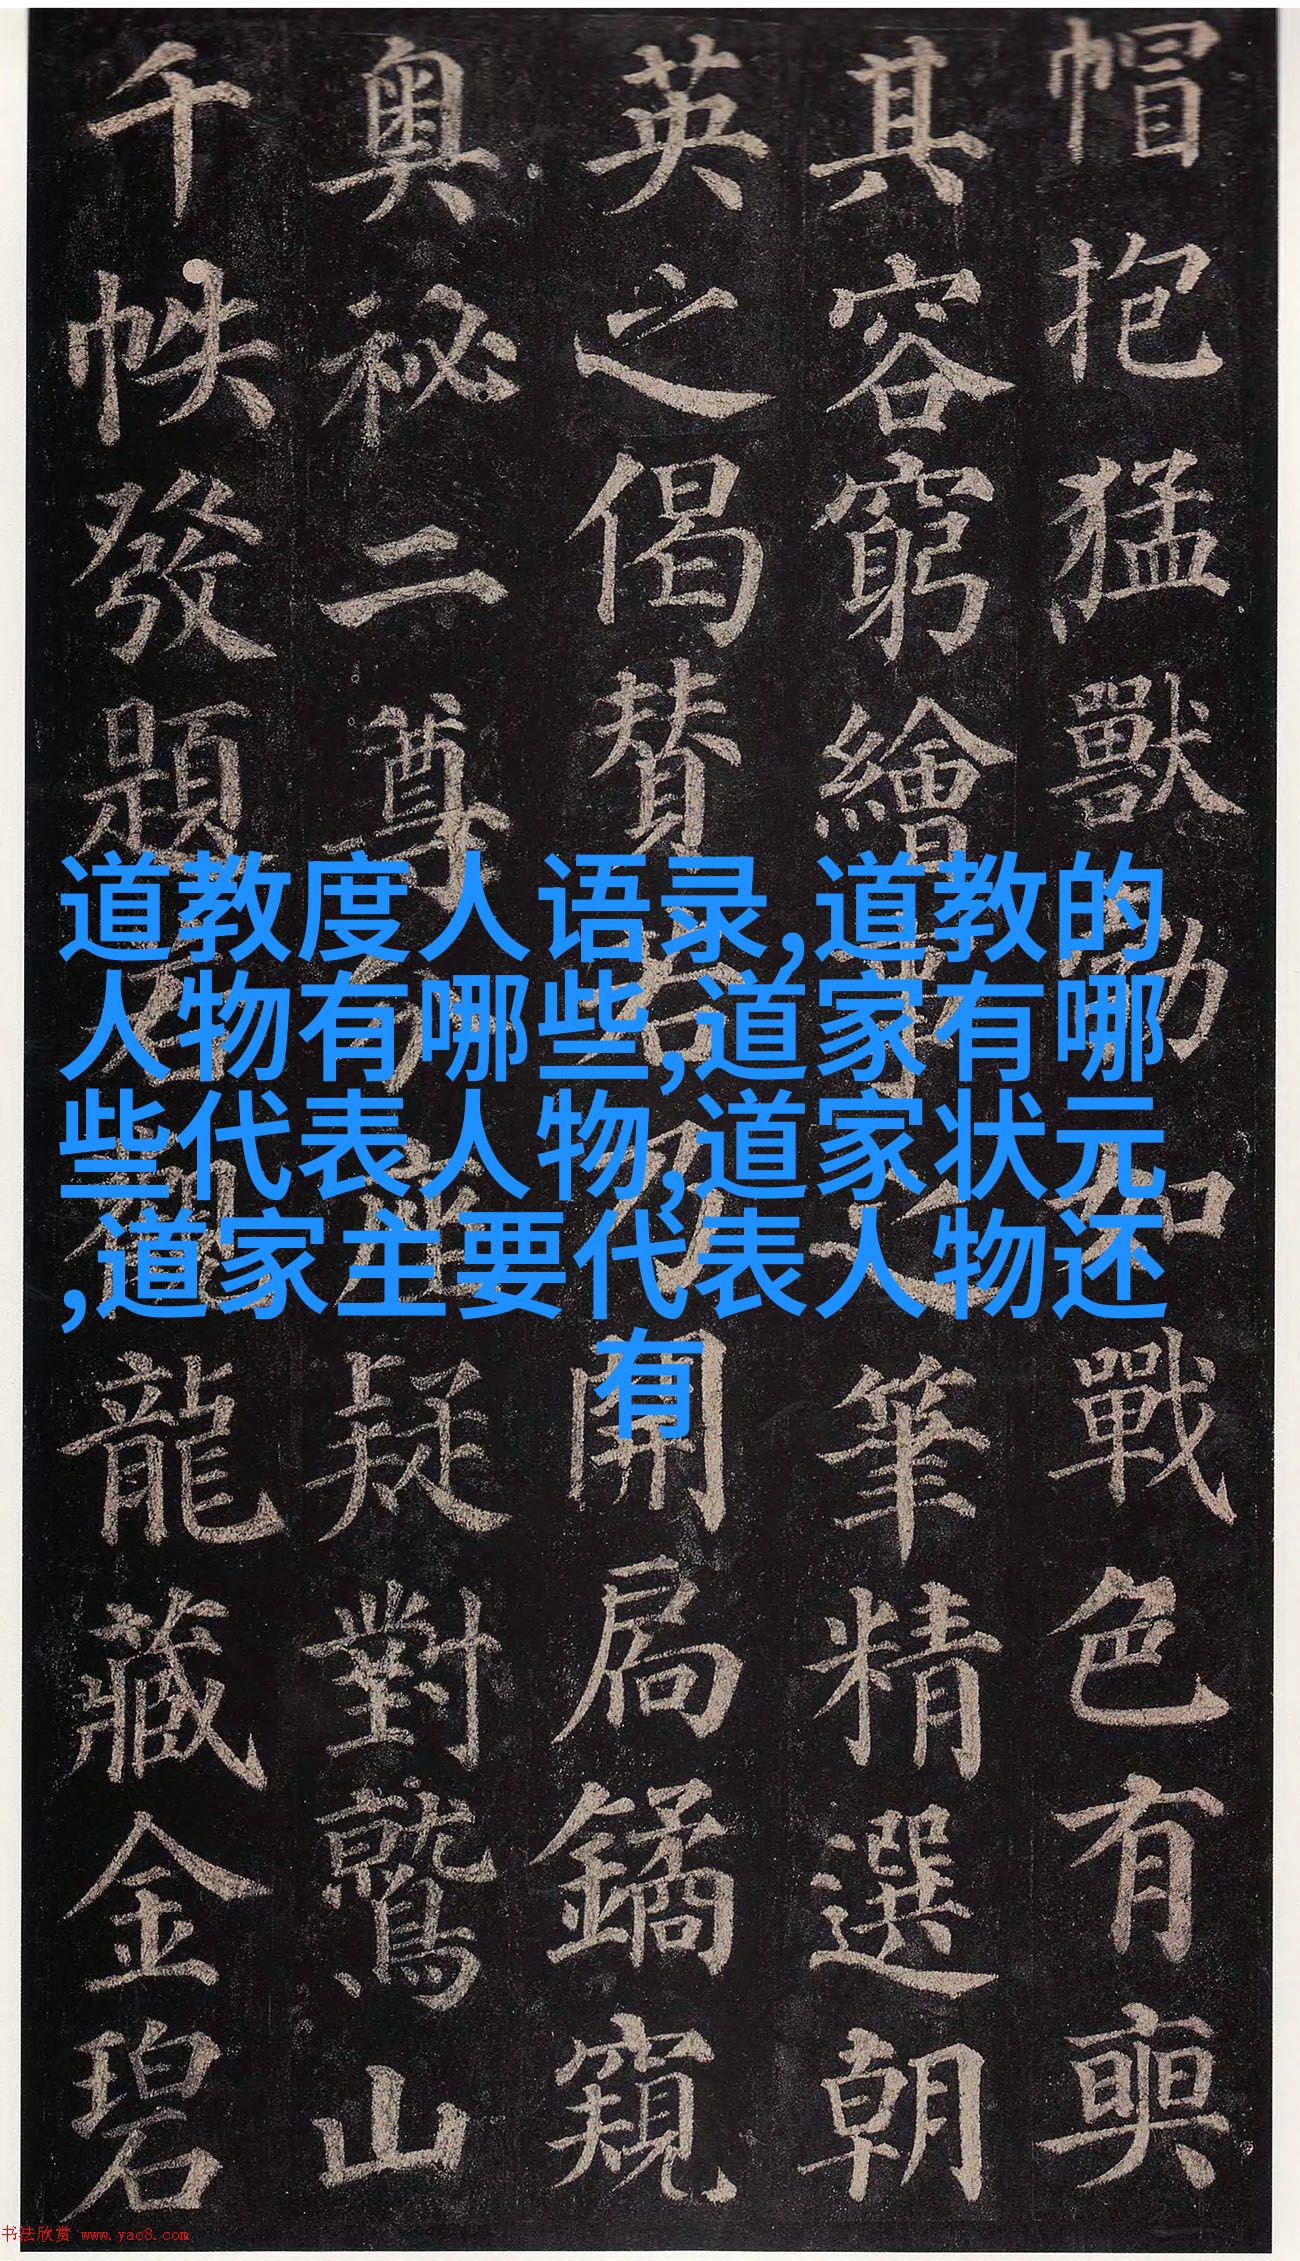 帽抱猛獸勃如戰色有奭
其容窮繪事之筆精選朝
英之偈贊若乃開扃鐍窺
奧祕二尊分座疑對鷲山
千帙發題若觀龍藏金碧
道教度人语录,道教的
人物有哪些,道家有哪
些代表人物,道家状元
,道家主要代表人物还
有
书法欣赏 www.yac8.com